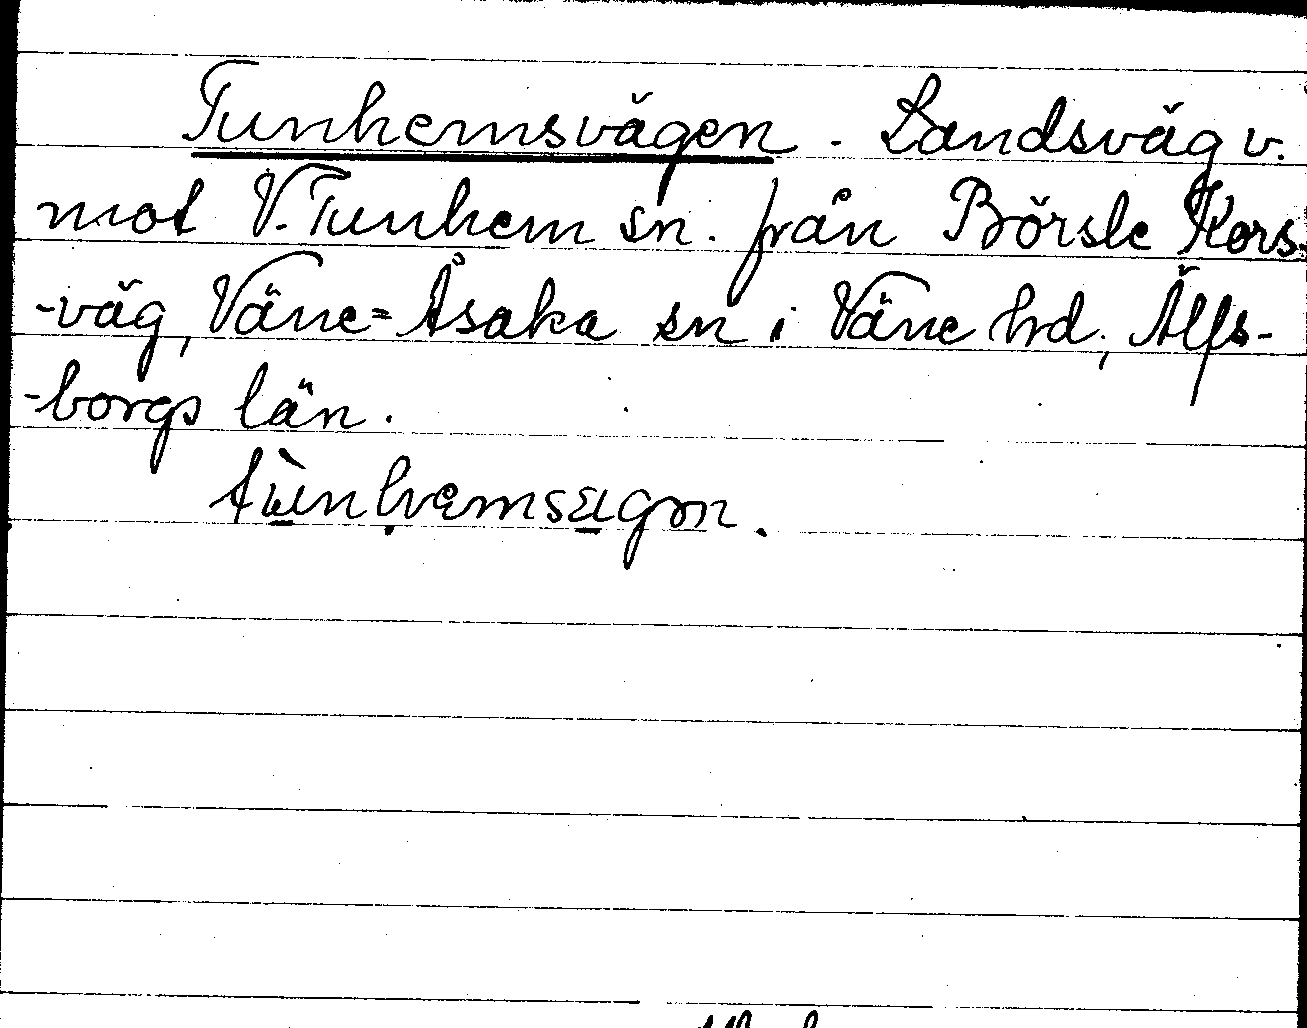 Tunhemsvägen - Landsväg v.
mot V. Tunhem sn. från Börsle Kors-
-väg, Väne=Åsaka sn i Väne hd, Älfs-
-borgs län.